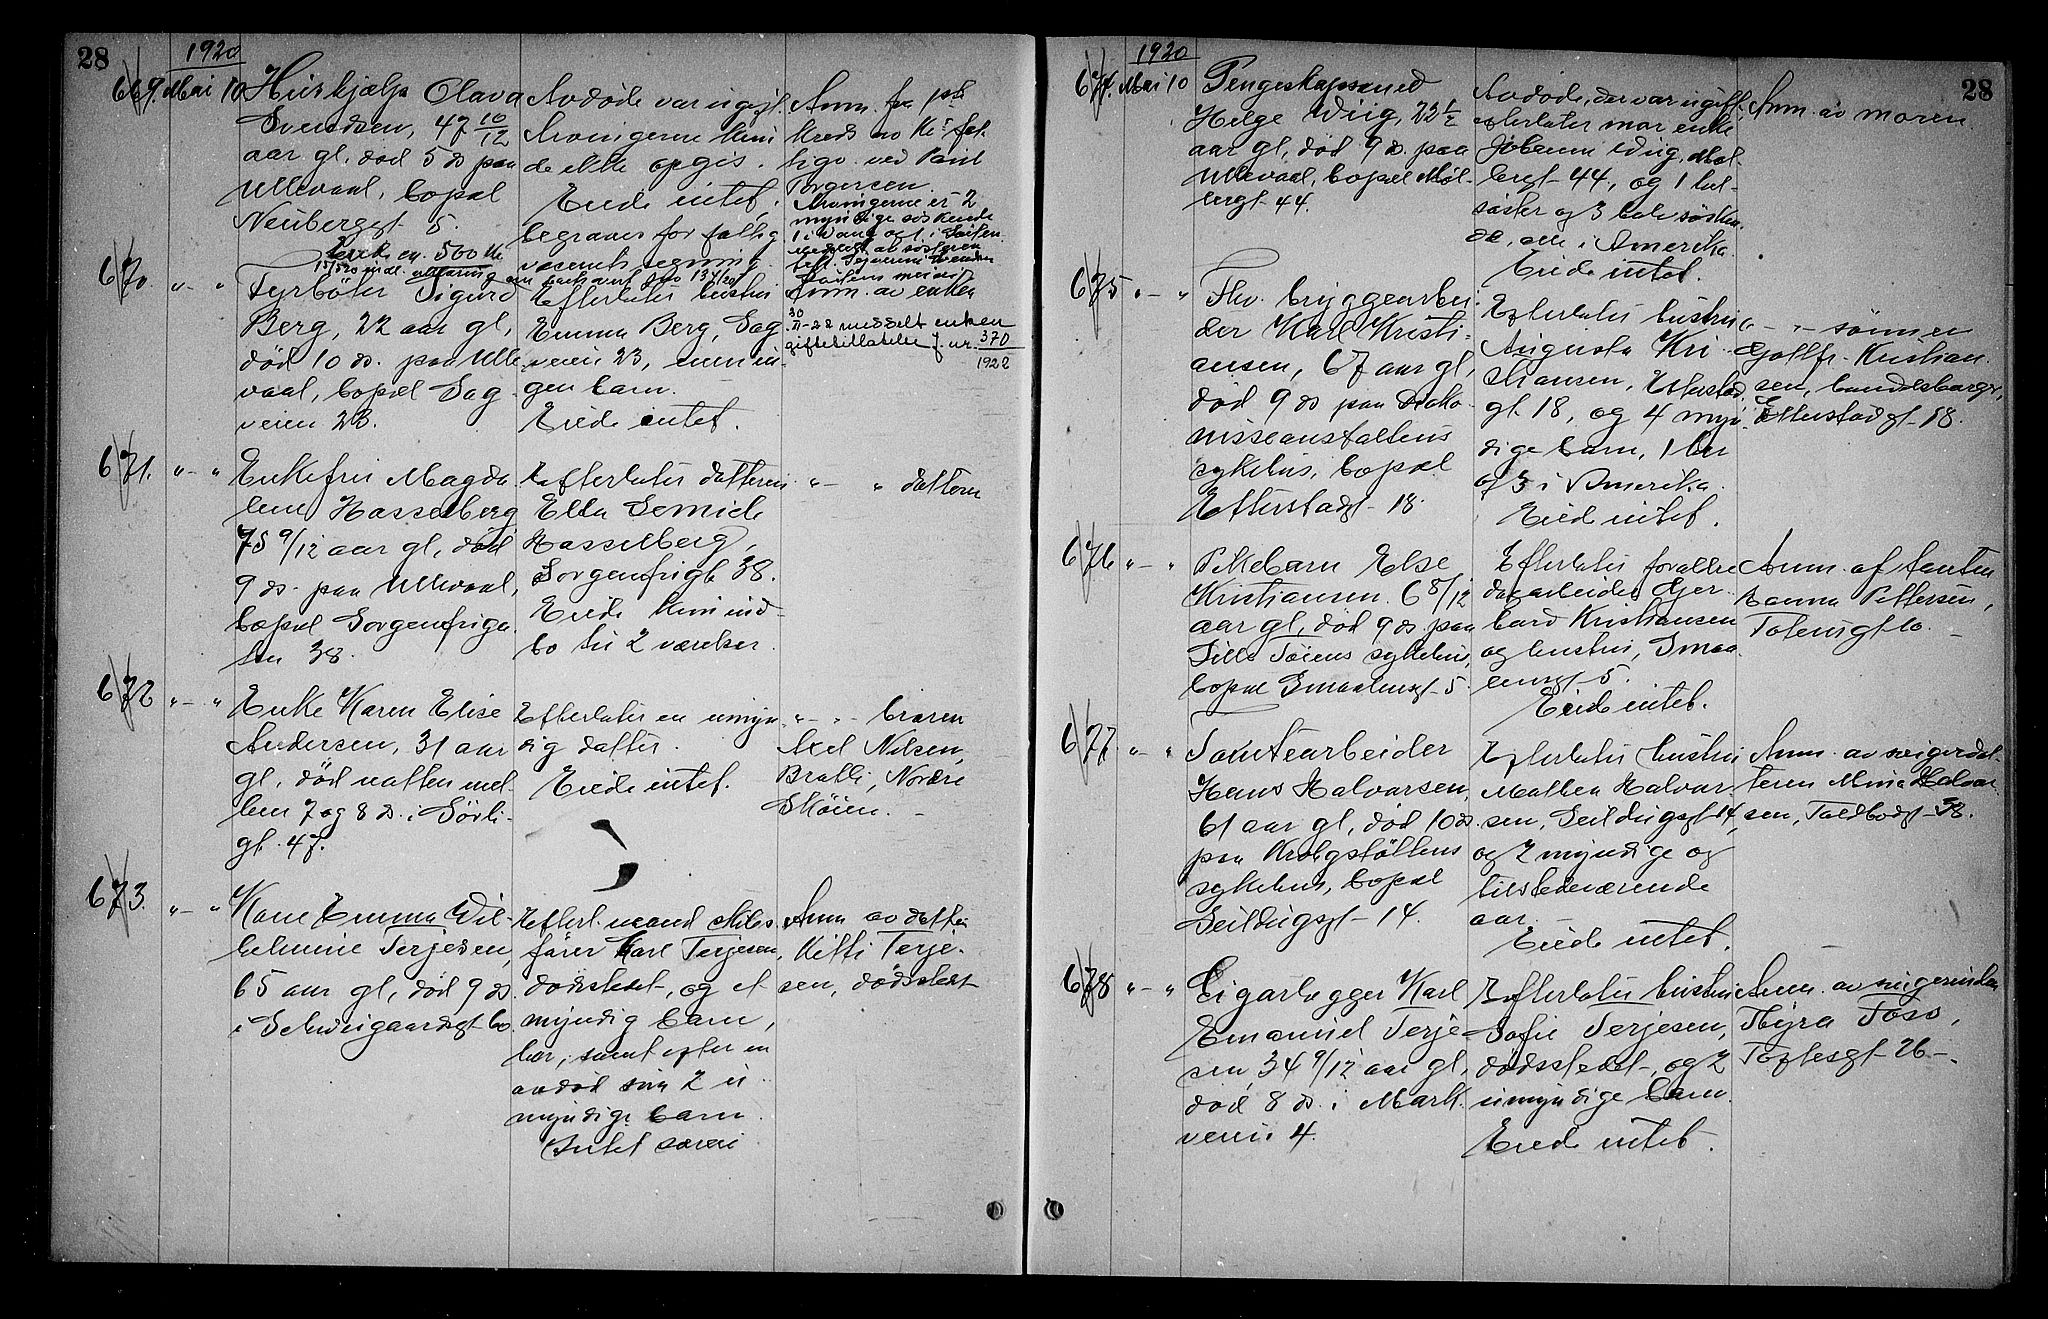 28
1920
669. Mai 10
Hushjælp Olava
Svendsen, 47 10/12
aar gl, død 5 ds paa
Ullevaal, bopæl
Neuberggt 5.
Avdøde var ugift.
Arvingerne kun
de ikke opgis.
Eiede intet,
begraves for fattig
væsenets regning.
Anm. fra
kreds av Kr. fat
tigv. ved Paul
Torgersen.
Arvingerne er 2
myndige søskende
670. " - "
Fyrbøter Sigurd
Berg, 22 aar gl,
død 10 ds. paa Ulle
vaal, bopæl Sag
veien 23.
Efterlater hustru
Emma Berg, Sag
veien 23, men in
gen barn.
Eiede intet.
Anm. av enken
30
II-22 meddelt enken
giftetillatelse j. nr. 370
1922
671. " - "
Enkefru Magda
lene Hasselberg
75 9/12 aar gl, død
9 ds. paa Ullevaal,
bopæl Sorgenfriga
ten 38.
Efterlater datteren
Ella
Hasselberg,
Sorgenfrigt 38.
Eiede kun ind
bo til 2 værelser.
" - " datteren
672 " - "
Enke Karen Elise
Andersen, 31 aar
gl, død natten mel
lem 7 og 8 ds. i Sörli
gt. 47.
Efterlater en umyn
dig datter.
Eiede intet.
" - " broren
Axel Nilsen,
Bratli, Nordre
Skøien. -
673. " - "
Kone Emma Wil-
helmine Terjesen,
65 aar gl, død 9 ds.
i Schweigaardsgt 60
Efterl. mand Skibs
fører Karl Terjesen,
dødsstedet, og et
myndig barn,
her, samt efter en
avdød søn 2 u
myndige barn.
Intet særeie
Anm av datter
Kitti Terje-
sen, dødsstedet
28
1920
674. Mai 10
Pengeskapssmed
Helge Wiig, 22 1/2
aar gl, død 9 ds. paa
Ullevaal, bopæl Møl-
lergt 44.
Avdøde, der var ugift,
efterlater mor enke
Johanne Wiig, Møl-
lergt 44, og 1 hel-
søster og 3 halvsøsken
de, alle i Amerika.
Eiede intet.
Anm. av moren.
675 " - "
Fhv. bryggearbei-
der Karl Kristi-
ansen, 67 aar gl,
død 9 ds paa Diako
nisseanstaltens
sykehus, bopæl
Etterstadgt 18.
Efterlater hustru
Augusta Kri
stiansen, Etterstad
gt. 18, og 4 myn
dige barn, 1 her
og 3 i Amerika.
Eiede intet.
" - " sønnen
Gottfr. Kristian
sen,
Etterstadgt 18.
676 " - "
Pikebarn Else
Kristiansen 6 8/12
aar gl, død 9 ds. paa
Lille Tøiens sykehus,
bopæl Smaalensgt 5.
Efterlater forældre
dagarbeider Gjer
hard Kristiansen
og hustru, Smaa
lensgt 5.
Eiede intet.
Anm. af tanten
Hanna Pettersen,
Totensgt 10. -
677. " - "
Tomtearbeider
Hans Halvorsen,
61 aar gl, død 10 ds.
paa Krohgstøttens
sykehus, bopæl
Seildugsgt 14.
Efterlater hustru
Mathea Halvor
sen, Seildugsgt 14,
og 7 myndige og
tilstedeværende
aar. -
Eiede intet.
Anm. av svigerdat-
teren Mina Halvor
sen, Toldbodgt 38.
678 " - "
Cigarlægger Karl
Emanuel Terje-
sen, 34 9/12 aar gl,
død 8 ds. i Mark
veien 4.
Efterlater hustru
Sofie Terjesen,
dødsstedet, og 2
umyndige barn.
Eiede intet.
Anm. av svigerinden
Thyra Foss,
Toftesgt 26 -.